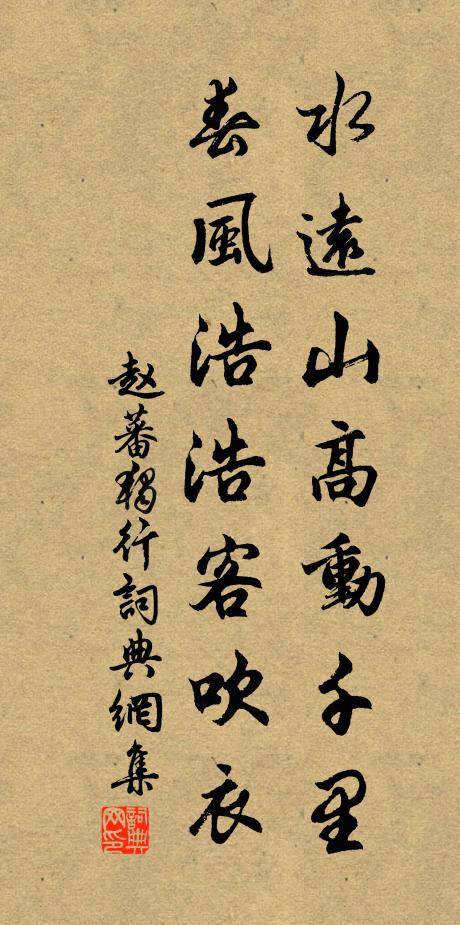 水遠山高動千里
春風浩浩客吹衣
趙蕃獨行詞典網集
詞典
网印